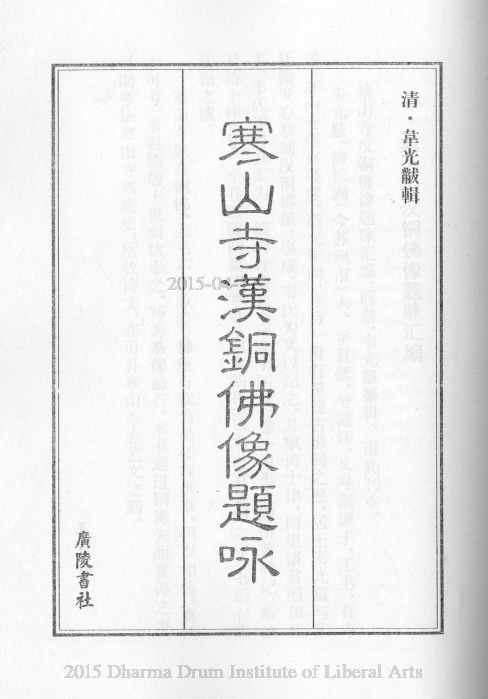 清·韋光黻輯
寒山寺漢銅佛像題咏
廣陵書社
2015-04-
2015 Dharma Drum Institute of Liberal Arts